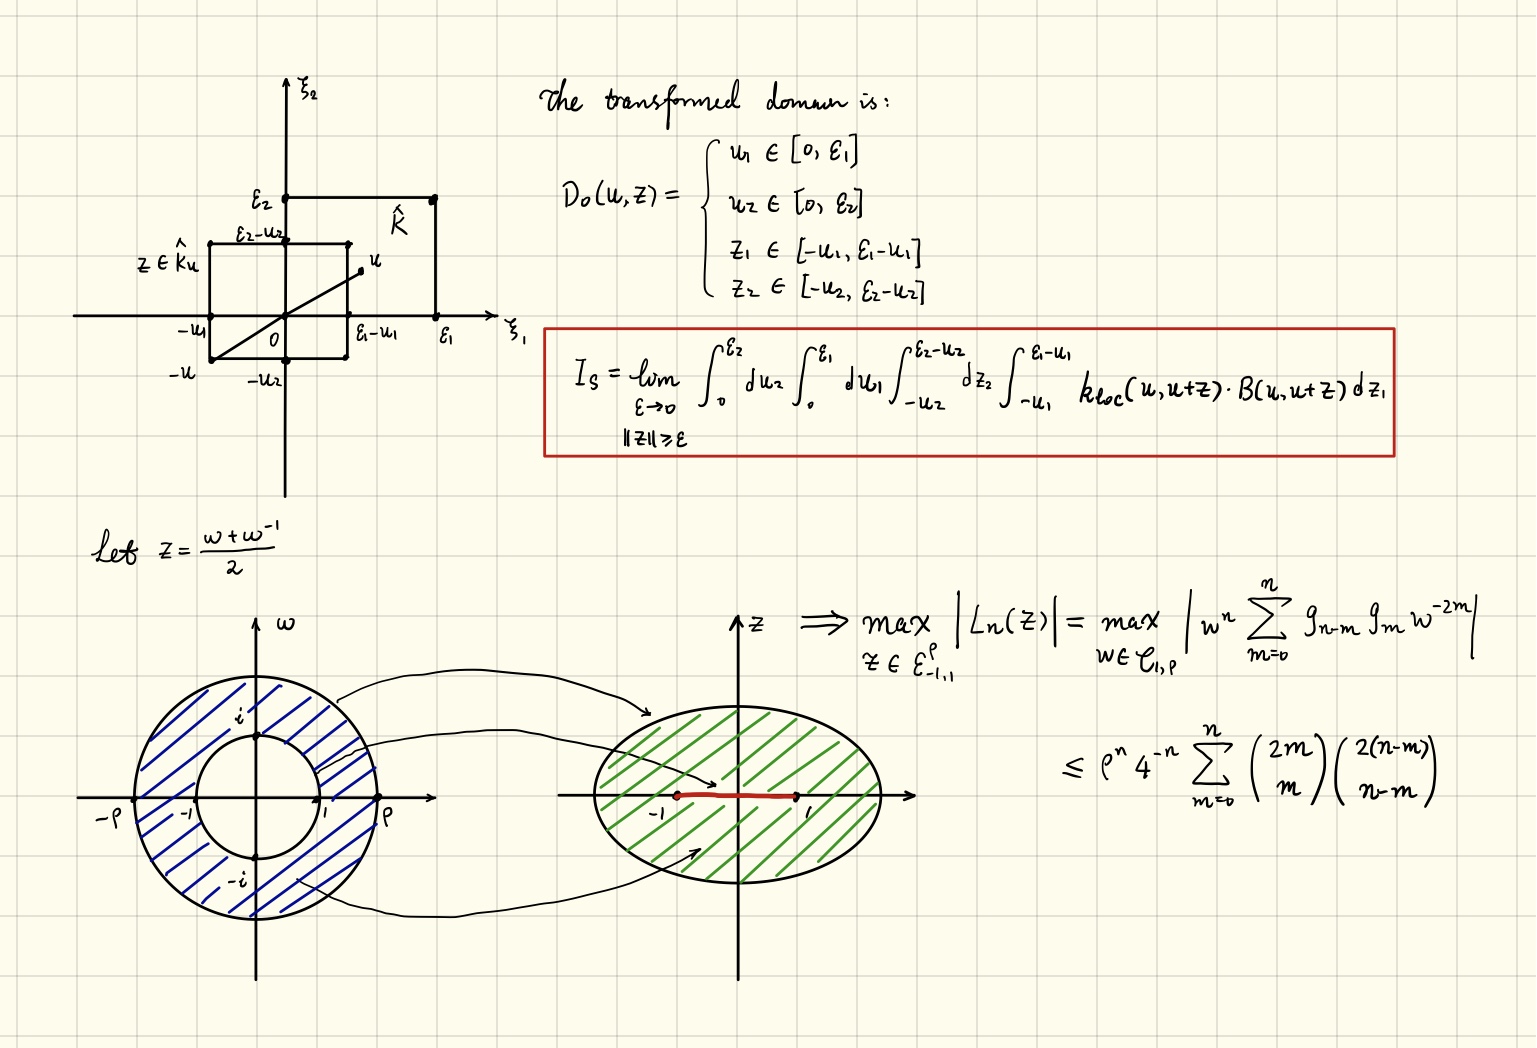 ξ₂
ε₂
K̂
ε₂-u₂
z ∈ K̂u
u
-u₁
0
ε₁-u₁
ε₁
ξ₁
-u
-u₂
The transformed domain is:
D₀(u,z) = {
u₁ ∈ [0, ε₁]
u₂ ∈ [0, ε₂]
z₁ ∈ [-u₁, ε₁-u₁]
z₂ ∈ [-u₂, ε₂-u₂]
I_S = lim_{ε→0, ‖z‖≥ε} ∫_0^{ε₂} du₂ ∫_0^{ε₁} du₁ ∫_{-u₂}^{ε₂-u₂} dz₂ ∫_{-u₁}^{ε₁-u₁} k_loc(u,u+z)·B(u,u+z) dz₁
Let z = (w + w⁻¹)/2
w
i
-ρ
-1
1
ρ
-i
z
-1
1
⟹ max_{z ∈ ℰ^ρ_{-1,1}} |Ln(z)| = max_{w ∈ 𝒞_{1,ρ}} |wⁿ ∑_{m=0}^{n} g_{n-m} g_m w^{-2m}|
≤ ρⁿ 4⁻ⁿ ∑_{m=0}^{n} (2m m) (2(n-m) n-m)